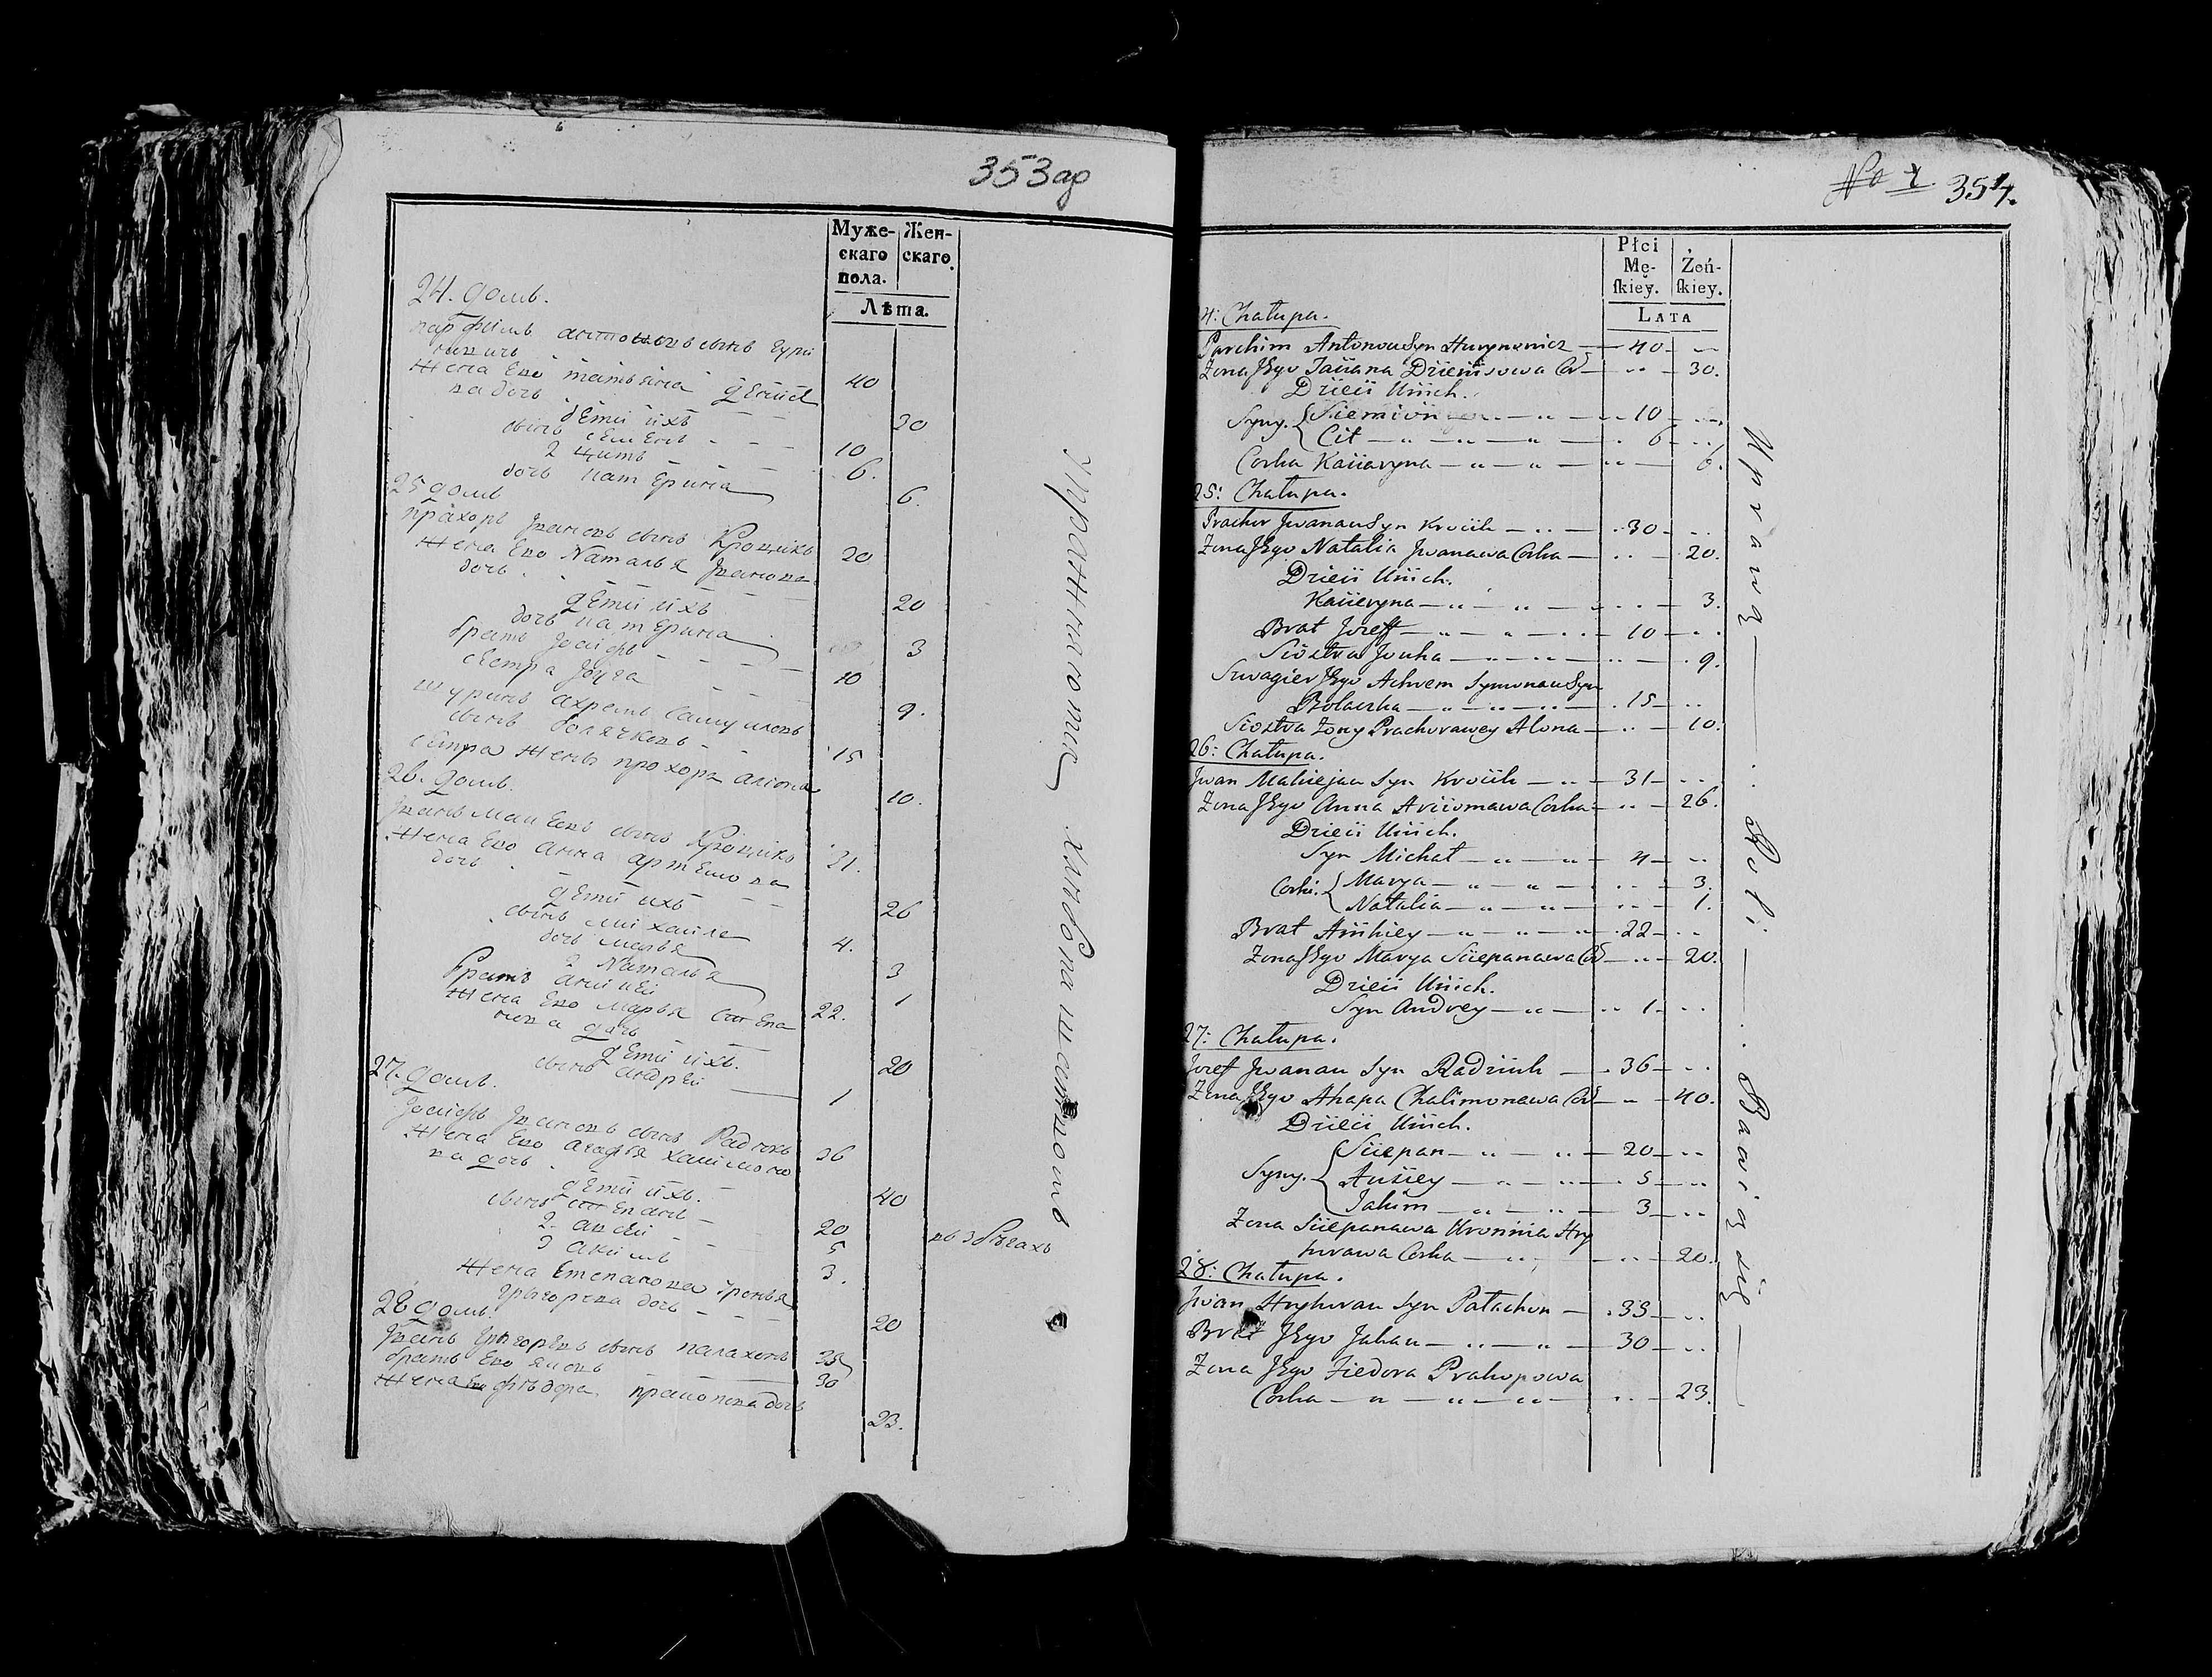 353 ад
Муже-
скаго
пола.
Жен-
скаго.
Лѣта.
24. домъ.
парфимъ антоновъ сынъ гури
новичъ 40
жена Ево татьяна дЕнисо
ва дочь 30
дЕти ихъ
сынъ сЕмЕнъ 10
2 титъ 6.
дочь катЕрина 6.
25 домъ
прахоръ Ивановъ сынъ Кроцикъ 20
жена Ево Наталья Иванова
дочь 20
дЕти ихъ
дочь катЕрина 3
братъ Іосифъ 10
сЕстра 9.
шуринъ ахремъ
сынъ болячковъ 15
сЕстра жены прохора алiона 10.
26. домъ.
Иванъ макЕевъ сынъ Кроцикъ 31.
жена Ево анна артЕмова
дочь 26
дЕти ихъ
сынъ михайла 4.
дочь марья 3
2 Наталья 1
братъ аникЕй 22.
жена Ево марья стЕпа
нова дочь 20
дЕти ихъ.
сынъ андрЕй 1
27. домъ.
Іосифъ Ивановъ сынъ Радюкъ 36
жена Ево агафья халимоно
ва дочь 40
дЕти ихъ.
сынъ стЕпанъ 20 въ збѣгахъ
2. авсЕй 5
3 акимъ 3.
жена степанова
григорьева дочь 20
28 домъ.
Иванъ григорЕвъ сынъ палахонъ 33
братъ Ево яковъ 30
жена Ево фѣдора пракопова дочь 23.
упражняются хлѣбопашествомъ
No 4 354.
Płci
Mę-
skiey.
Żeń-
skiey.
LATA
24: Chałupa.
Parchim Antonou Syn Hurynowicz 40
Zona Jego Taciana Dzienisowa Cor 30.
Dzieci Unich.
Syny. Siemion 10
Cit 6
Corka Kaciaryna 6.
25: Chałupa.
Prachor Jwanau Syn Krocik 30
Zona Jego Natalia Jwanawa Corka 20.
Dzieci Unich.
Kacieryna 3.
Brat Jozeff 10
Siostra Jouha 9.
Swagier Jego Achrem Symonau Syn
Bolaczka 15
Siostra Zony Prachorawey Alona 10.
26: Chałupa.
Jwan Makiejau Syn Krocik 31
Zona Jego Anna Arciomawa Corka 26.
Dzieci Unich.
Syn Michał 4
Corki. Marya 3.
Natalia 1.
Brat Anikiey 22
Zona Jego Marya Sciepanawa Cor 20.
Dzieci Unich.
Syn Andrey 1
27: Chałupa.
Jozef Jwanau Syn Radziuk 36
Zona Jego Ahapa Chalimonawa Cor 40.
Dzieci Unich.
Syny. Sciepan 20
Ausiey 5
Jakim 3
Zona Sciepanawa Hry
horawa Corka 20.
28: Chałupa.
Jwan Hryhorau Syn Patachon 33
Brat Jego Jakau 30
Zona Jego Fiedora Prakopowa
Corka 23.
Uprawą Roli Bawią się